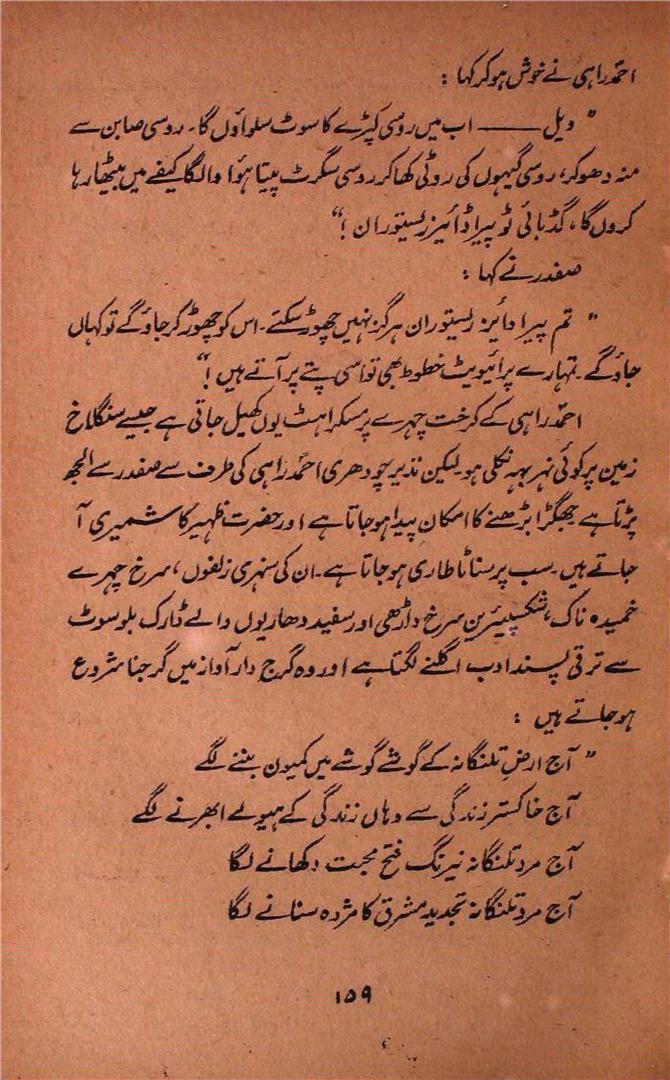 احمد راہی نے خوش ہو کر کہا :
" ویل ــــــ اب میں روسی کپڑے کا سوٹ سلواؤں گا۔ روسی صابن سے
منہ دھو کر، روسی گیہوں کی روٹی کھا کر روسی سگرٹ پیتا ہوا والگا کیفے میں بیٹھا رہا
کروں گا، گڈ بائی ٹو پیراڈائیز ریستوران !"
صفدر نے کہا :
" تم پیراڈائیز ریستوران ہرگز نہیں چھوڑ سکتے۔ اس کو چھوڑ کر جاؤ گے تو کہاں
جاؤ گے۔ تمہارے پرائیویٹ خطوط بھی تو اسی پتے پر آتے ہیں !"
احمد راہی کے کرخت چہرے پر مسکراہٹ یوں کھیل جاتی ہے جیسے سنگلاخ
زمین پر کوئی نہر بہہ نکلی ہو۔ لیکن نذیر چودھری احمد راہی کی طرف سے صفدر سے الجھ
پڑتا ہے۔ جھگڑا بڑھنے کا امکان پیدا ہو جاتا ہے اور حضرت ظہیر کاشمیری آ
جاتے ہیں۔ سب پر سناٹا طاری ہو جاتا ہے۔ ان کی سنہری زلفوں، سرخ چہرے
خمیدہ ناک، شکسپیئرین سرخ داڑھی اور سفید دھاریوں والے ڈارک بلو سوٹ
سے ترقی پسند ادب اگلنے لگتا ہے اور وہ گرج دار آواز میں گرجنا شروع
ہو جاتے ہیں :
" آج ارضِ تلنگانہ کے گوشے گوشے میں کمیون بننے لگے
آج خاکستر زندگی سے وہاں زندگی کے ہیولے ابھرنے لگے
آج مرد تلنگانہ نیرنگ فتح محبت دکھانے لگا
آج مرد تلنگانہ تجدید مشرق کا مژدہ سنانے لگا
۱۵۹